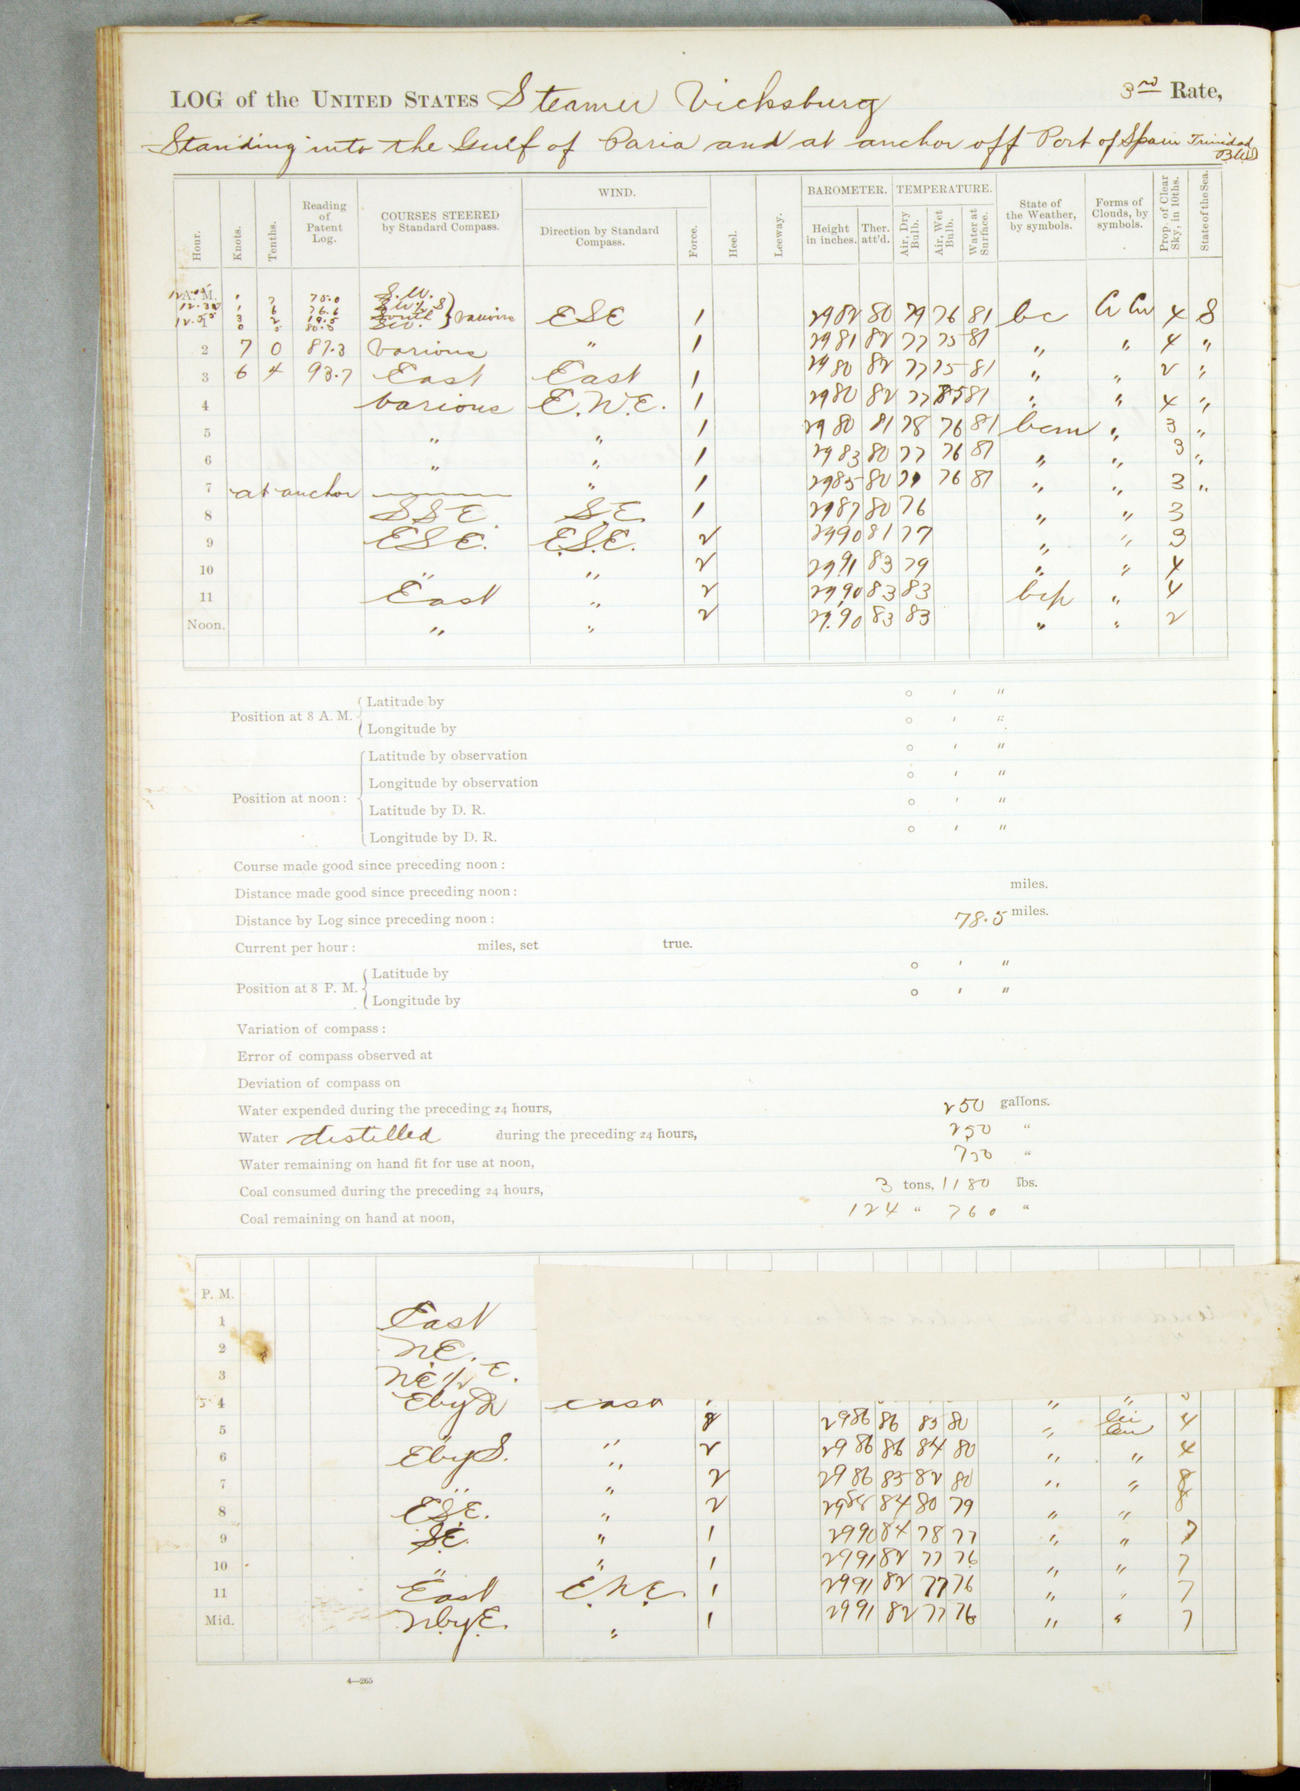 LOG of the UNITED STATES Steamer Vicksburg 3rd Rate,
Standing into the Gulf of Paria and at anchor off Port of Spain Trinidad
B.W.I.
Hour. Knots. Tenths. Reading of Patent Log. COURSES STEERED by Standard Compass. WIND. Direction by Standard Compass. Force. Heel. Leeway. BAROMETER. Height in inches. Ther. att'd. TEMPERATURE. Air, Dry Bulb. Air, Wet Bulb. Water at Surface. State of the Weather, by symbols. Forms of Clouds, by symbols. Prop. of Clear Sky, in 10ths. State of the Sea.
A. M. S.W.
1 various ESE 1 2982 80 79 76 81 bc 4 S
2 7 0 87.3 various " 1 2981 82 77 75 81 " " 4 "
3 6 4 93.7 East East 1 2980 82 77 75 81 " " 2 "
4 various E.N.E. 1 2980 82 77 81 " " 4 "
5 " " 1 2980 81 78 76 81 bcm " 3 "
6 " " 1 2983 80 77 76 81 " " 3 "
7 at anchor " 1 2985 80 76 81 " " 3 "
8 SSE. SE. 1 2987 80 76 " " 3
9 ESE. E.S.E. 2 2990 81 77 " " 3
10 " " 2 29.91 83 79 " " 4
11 East " 2 29.90 83 83 bcp " 4
Noon. " " 2 29.90 83 83 " " 2
Position at 8 A. M. Latitude by ° ' "
Longitude by ° ' "
Position at noon: Latitude by observation ° ' "
Longitude by observation ° ' "
Latitude by D. R. ° ' "
Longitude by D. R. ° ' "
Course made good since preceding noon:
Distance made good since preceding noon: miles.
Distance by Log since preceding noon: 78.5 miles.
Current per hour: miles, set true.
Position at 8 P. M. Latitude by ° ' "
Longitude by ° ' "
Variation of compass:
Error of compass observed at
Deviation of compass on
Water expended during the preceding 24 hours, 250 gallons.
Water distilled during the preceding 24 hours, 250 "
Water remaining on hand fit for use at noon, "
Coal consumed during the preceding 24 hours, 3 tons, 1180 lbs.
Coal remaining on hand at noon, 124 " 760 "
P. M.
1 East
2 NE.
3 NE 1/2 E.
4 East " "
5 " " 2 2986 86 83 80 " 4
6 EbyS. " 2 2986 86 84 80 " " 4
7 " " 2 2986 83 82 80 " " 8
8 ESE. " 2 84 80 79 " " 8
9 SE. " 1 2990 84 78 77 " " 7
10 " " 1 2991 82 77 76 " " 7
11 East E.N.E. 1 2991 82 77 76 " " 7
Mid. NbyE. " 1 2991 82 77 76 " " 7
4—265